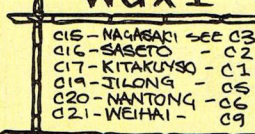 WUXI
C15 - NAGASAKI SEE C3
C16 - SASETO - C2
C17 - KITAKUYSO - C1
C19 - JILONG - C5
C20 - NANTONG - C6
C21 - WEIHAI - C9